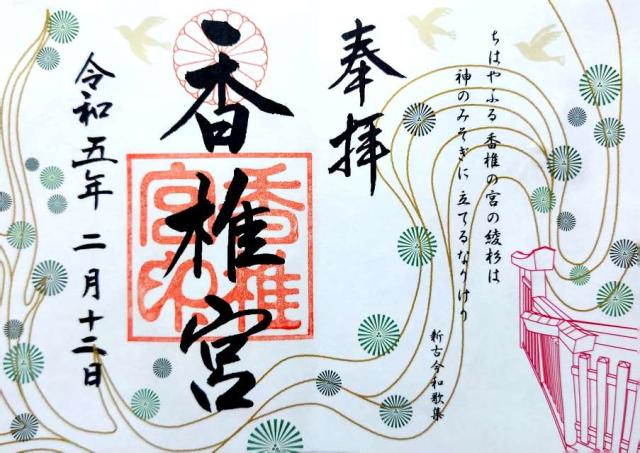 ちはやふる 香椎の宮の綾杉は
神のみそぎに 立てるなりけり
新古今和歌集
奉拝
香椎宮
香椎宮印
令和五年二月十二日